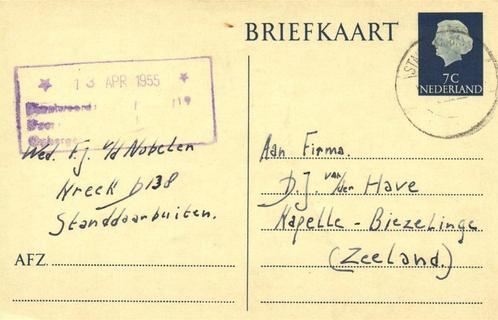 BRIEFKAART
7C
NEDERLAND
★ 13 APR 1955 ★
19
Wed. F.j. v/d Nobelen
Kreek D138
Standdaarbuiten.
AFZ.
Aan Firma.
D.J. van der Have
Kapelle - Biezelinge
(Zeeland.)